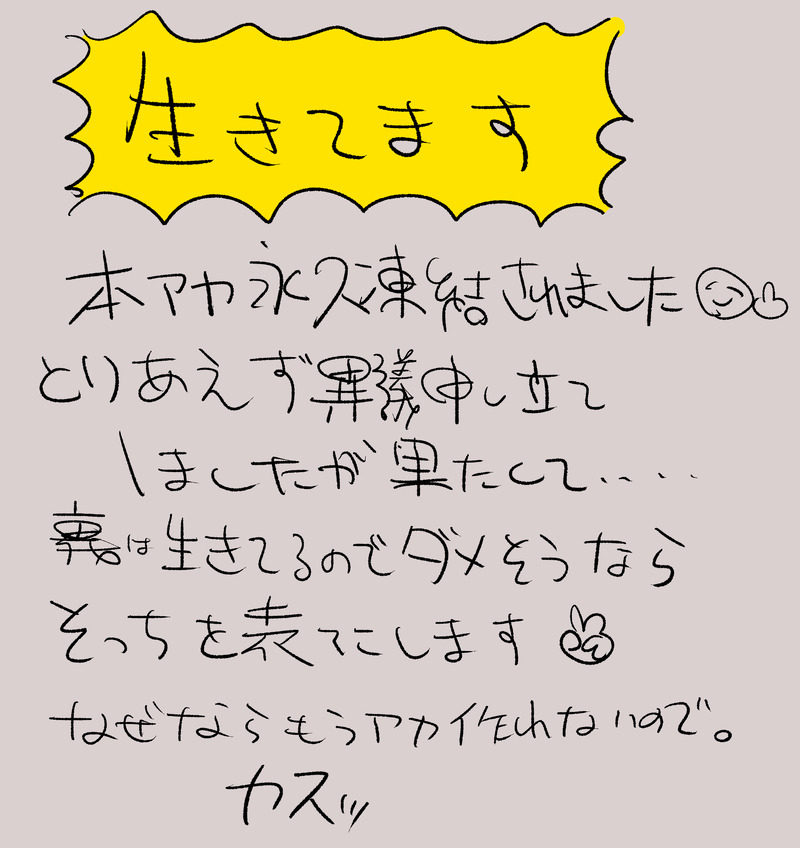 生きてます
本アカ永久凍結されました
とりあえず異議申し立て
しましたが果たして‥‥
裏は生きてるのでダメそうなら
そっちを表てにします
なぜならもうアカイ作れないので。
カスッ